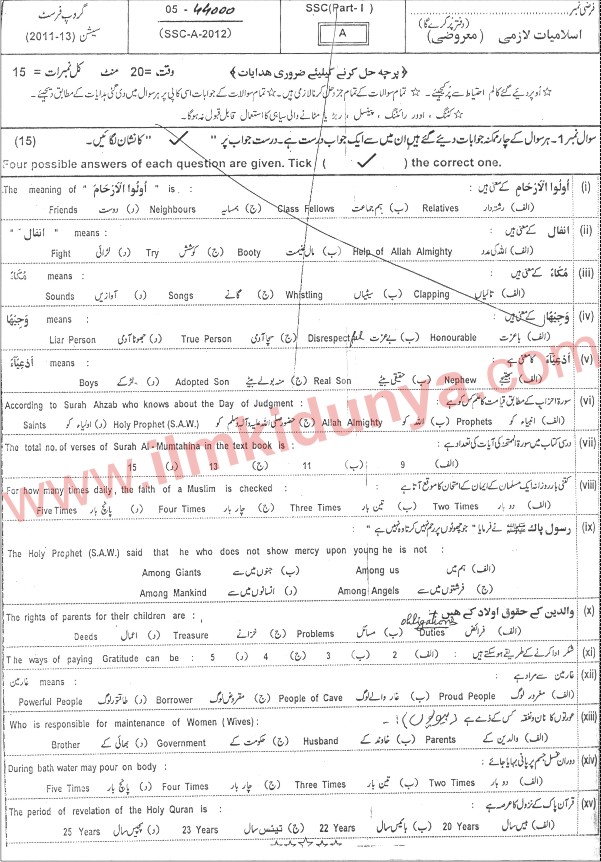 گروپ فرسٹ
سیشن (2011-13)
05 - 44000
(SSC-A-2012)
SSC(Part-I)
A
اسلامیات لازمی (معروضی)
فرضی نمبر
(دفتر پُر کرے گا)
﴿ پرچہ حل کرنے کیلئے ضروری ہدایات ﴾ وقت = 20 منٹ کل نمبرات = 15
سوال نمبر 1۔ ہر سوال کے چار ممکنہ جوابات دیئے گئے ہیں ان میں سے ایک جواب درست ہے۔ درست جواب پر " ✓ " کا نشان لگائیں۔ (15)
Four possible answers of each question are given. Tick ( ✓ ) the correct one.
(i) اُولُوا الْاَرْحَام کے معنی ہیں : The meaning of " اُولُوا الْاَرْحَام " is :
(الف) رشتہ دار Relatives (ب) ہم جماعت Class Fellows (ج) ہمسایہ Neighbours (د) دوست Friends
(ii) انفال کے معنی ہیں : " انفال " means :
(الف) اللہ کی مدد Help of Allah Almighty (ب) مال غنیمت Booty (ج) کوشش Try (د) لڑائی Fight
(iii) مُكَآءً کے معنی ہیں : مُكَآءً means :
(الف) تالیاں Clapping (ب) سیٹیاں Whistling (ج) گانے Songs (د) آوازیں Sounds
(iv) وَجِيْهًا کے معنی ہیں : وَجِيْهًا means :
(الف) باعزت Honourable (ب) بے عزت Disrespectful (ج) سچا آدمی True Person (د) جھوٹا آدمی Liar Person
(v) اَدْعِيَآءَ کا معنی ہے : اَدْعِيَآءَ means :
(الف) بھتیجے Nephew (ب) حقیقی بیٹے Real Son (ج) منہ بولے بیٹے Adopted Son (د) لڑکے Boys
(vi) سورۃ احزاب کے مطابق قیامت کا علم کس کو ہے : According to Surah Ahzab who knows about the Day of Judgment :
(الف) انبیاء کو Prophets (ب) اللہ کو Allah Almighty (ج) حضور صلی اللہ علیہ وآلہ وسلم کو Holy Prophet (S.A.W.) (د) اولیاء کو Saints
(vii) درسی کتاب میں سورۃ الممتحنہ کی آیات کی تعداد ہے : The total no. of verses of Surah Al-Mumtahina in the text book is :
(الف) 9 (ب) 11 (ج) 13 (د) 15
(viii) کتنی بار روزانہ ایک مسلمان کے ایمان کے امتحان کا موقع آتا ہے : For how many times daily, the faith of a Muslim is checked :
(الف) دو بار Two Times (ب) تین بار Three Times (ج) چار بار Four Times (د) پانچ بار Five Times
(ix) رسول پاک ﷺ نے فرمایا " جو چھوٹوں پر رحم نہیں کرتا وہ نہیں ہے "
The Holy Prophet (S.A.W.) said that he who does not show mercy upon young he is not :
(الف) ہم میں Among us (ب) جنوں میں سے Among Giants
(ج) فرشتوں میں سے Among Angels (د) انسانوں میں سے Among Mankind
(x) والدین کے حقوق اولاد کے ہیں : The rights of parents for their children are :
obligations
(الف) فرائض Duties (ب) مسائل Problems (ج) خزانے Treasure (د) اعمال Deeds
(xi) شکر ادا کرنے کے طریقے ہو سکتے ہیں : The ways of paying Gratitude can be : (الف) 2 (ب) 3 (ج) 4 (د) 5
(xii) غارمین سے مراد ہے : غارمین means :
(الف) مغرور لوگ Proud People (ب) غار والے لوگ People of Cave (ج) مقروض لوگ Borrower (د) طاقتور لوگ Powerful People
(xiii) عورتوں کا نان و نفقہ کس کے ذمے ہے (بیویوں) Who is responsible for maintenance of Women (Wives):
(الف) والدین کے Parents (ب) خاوند کے Husband (ج) حکومت کے Government (د) بھائی کے Brother
(xiv) دوران غسل جسم پر پانی بہایا جائے : During bath water may pour on body :
(الف) دو بار Two Times (ب) تین بار Three Times (ج) چار بار Four Times (د) پانچ بار Five Times
(xv) قرآن پاک کے نزول کا عرصہ ہے : The period of revelation of the Holy Quran is :
(الف) بیس سال 20 Years (ب) بائیس سال 22 Years (ج) تیئس سال 23 Years (د) پچیس سال 25 Years
www.ilmkidunya.com